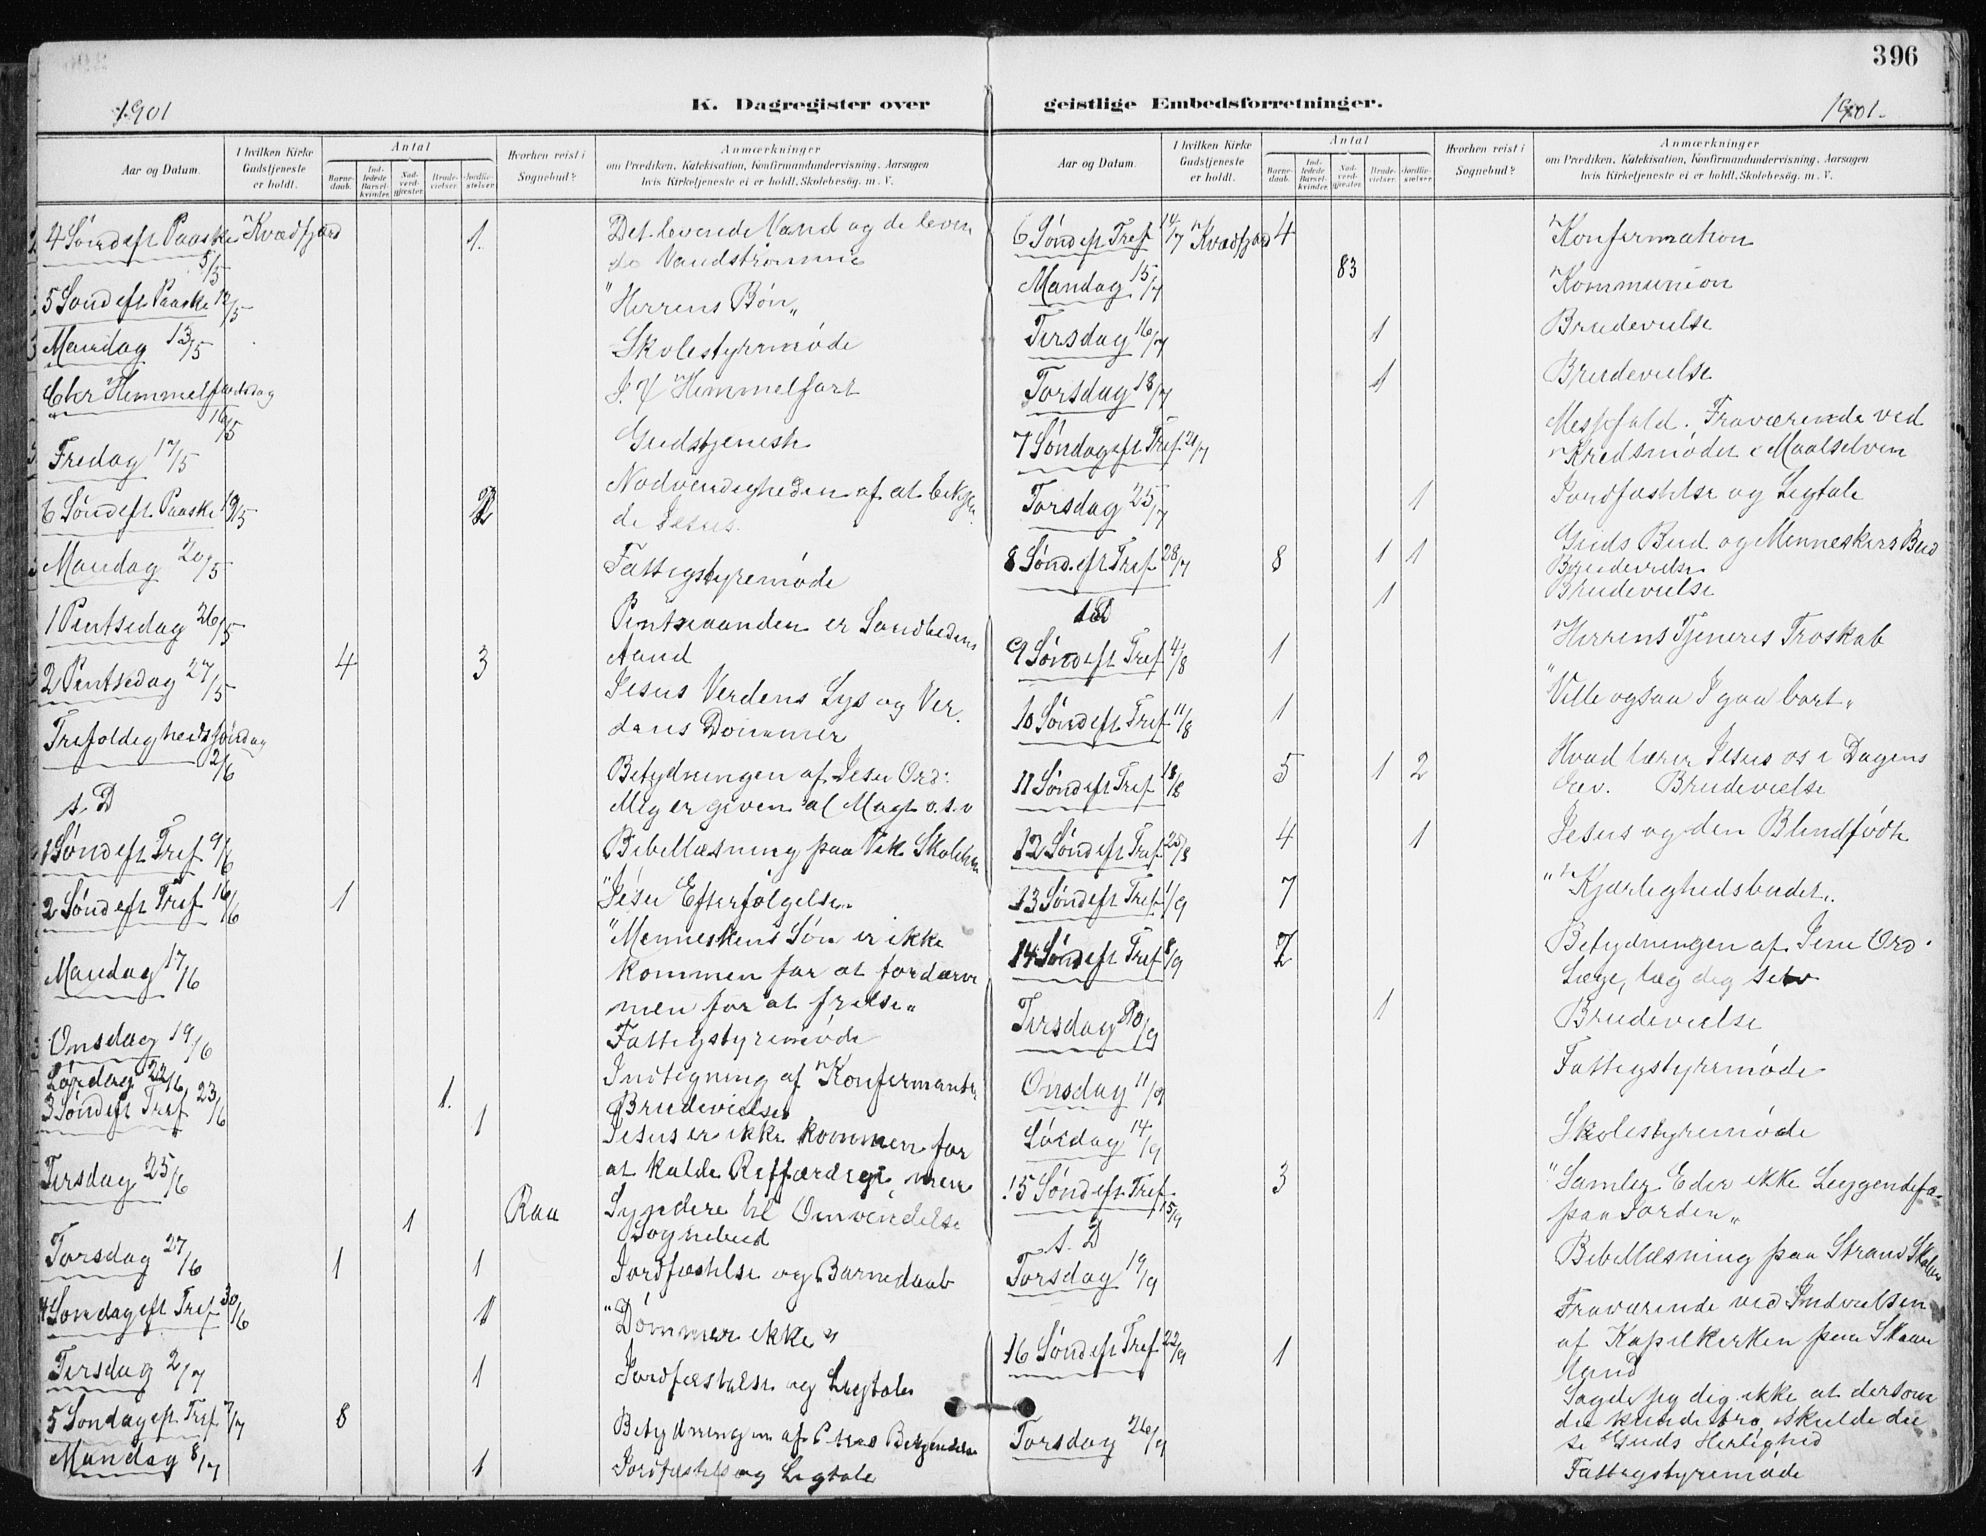 396
1901
K. Dagregister over
Aar og Datum.
I hvilken Kirke Gudstjeneste er holdt.
Antal
Barnedaab.
Indledede Barselkvinder.
Nadverdgjester.
Brudevielser.
Jordfæstelser.
Hvorhen reist i Sognebud?
Anmærkninger
om Prædiken, Katekisation, Konfirmandundervisning, Aarsagen
hvis Kirketjeneste ei er holdt, Skolebesøg. m. V.
4 Sønd eft Paaske 5/5 Kvædfjord 1. Det levende Vand og de leven
de Vandstrømme
5 Sønd eft Paaske 12/5 "Herrens Bøn"
Mandag 13/5 Skolestyremøde
Chr Himmelfartsdag 16/5 J. X Himmelfart
Fredag 17/5 Gudstjeneste
6 Sønd eft Paaske 19/5 2 Nødvendigheden af at bekjen
de Jesus.
Mandag 20/5 Fattigstyremøde
1 Pintsedag 26/5 Pintseaanden er Sandhedens
Aand
2 Pintsedag 27/5 4 3 Jesus Verdens Lys og Ver-
dens Dommer
Trefoldighedssøndag 2/6 Betydningen af Jesu Ord:
Mig er given al Magt o.s.v
s. D Bibellæsning paa Vik Skolehus
1 Sønd eft Tref 9/6 "Jesu Efterfølgelse"
2 Sønd eft Tref 16/6 1 "Menneskens Søn er ikke
kommen for at fordærve
men for at frelse"
Mandag 17/6 Fattigstyremøde
Onsdag 19/6 Indtegning af Konfirmanter
Lørdag 22/6 1. Brudevielse
3 Sønd eft Tref 23/6 1 Jesus er ikke kommen for
at kalde Retfærdige men
Syndere til Omvendelse
Tirsdag 25/6 1 Raa Sognebud
Torsdag 27/6 1 1 Jordfæstelse og Barnedaab
4 Søndag eft Tref 30/6 1 "Dømmer ikke"
Tirsdag 2/7 1 Jordfæstelse og Ligtale
5 Søndag eft Tref 7/7 8 Betydningen af Bekjendelse
Mandag 8/7 1 Jordfæstelse og Ligtale
geistlige Embedsforretninger.
1901.
Aar og Datum.
I hvilken Kirke Gudstjeneste er holdt.
Antal
Barnedaab.
Indledede Barselkvinder.
Nadverdgjester.
Brudevielser.
Jordfæstelser.
Hvorhen reist i Sognebud?
Anmærkninger
om Prædiken, Katekisation, Konfirmandundervisning, Aarsagen
hvis Kirketjeneste ei er holdt, Skolebesøg. m. V.
6 Sønd eft Tref 14/7 Kvædfjord 4 Konfirmation
Mandag 15/7 83 Kommunion
Tirsdag 16/7 1 Brudevielse
Torsdag 18/7 1 Brudevielse
7 Søndag eft Tref 21/7 Messfald. Fraværende ved
Kredsmødet i Maalselven
Torsdag 25/7 1 Jordfæstelse og Ligtale
8 Sønd eft Tref 28/7 8 1 1 Guds Bud og Menneskers Bud
Brudevielse
1 Brudevielse
9 Sønd eft Tref 4/8 1 Herrens Tjeneres Troskab
10 Sønd eft Tref 11/8 1 "Ville ogsaa I gaa bort"
11 Sønd eft Tref 18/8 5 1 2 Hvad lærer Jesus os i Dagens
Ev. Brudevielse
12 Sønd eft Tref 25/8 4 1 Jesus og den Blindfødte
13 Sønd eft Tref 1/9 7 "Kjærlighedsbudet"
14 Sønd eft Tref 8/9 2 Betydningen af Jesu Ord
Læge, læg dig selv
Tirsdag 10/9 1 Brudevielse
Onsdag 11/9 Fattigstyremøde
Lørdag 14/9 Skolestyremøde
15 Sønd eft Tref 15/9 3 "Samler Eder ikke Liggendefæ
paa Jorden"
s. D Bibellæsning paa Strand Skolehus
Torsdag 19/9 Fraværende ved Indvielsen
af Kapelkirken paa Skaan
land
16 Sønd eft Tref 22/9 1 Sagde jeg dig ikke at dersom
du kunde tro, skulde du
se Guds Herlighed
Torsdag 26/9 Fattigstyremøde